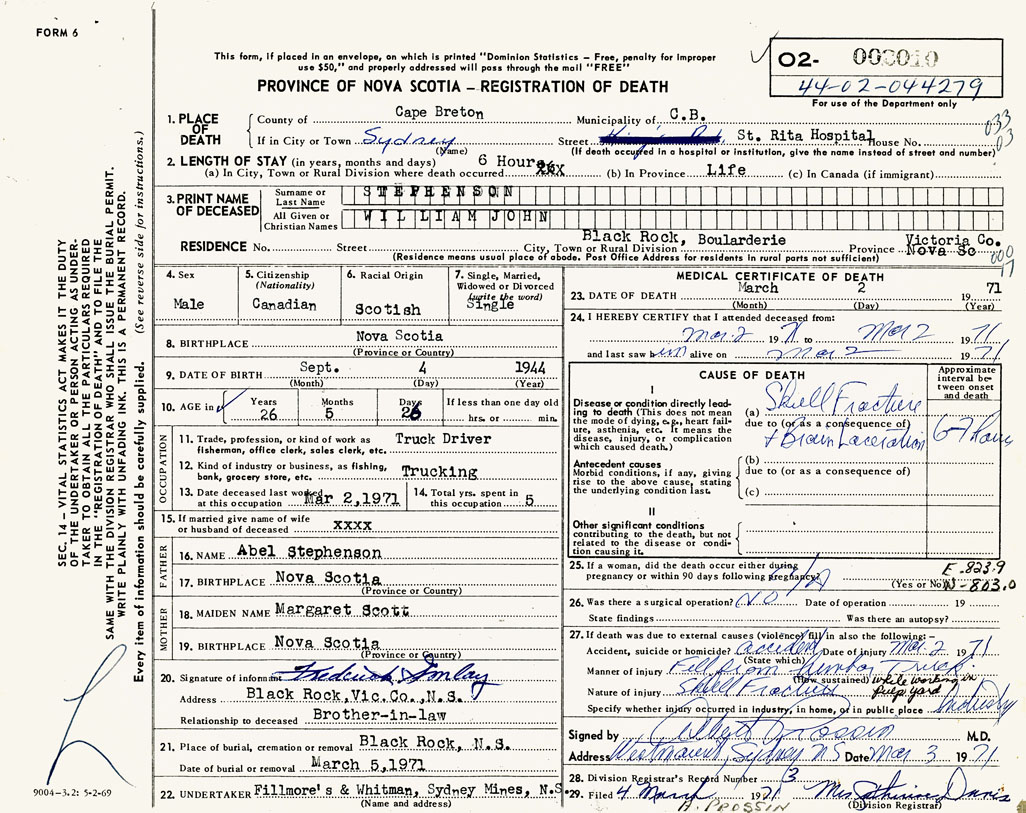 FORM 6
This form, if placed in an envelope, on which is printed "Dominion Statistics – Free, penalty for improper
use $50," and properly addressed will pass through the mail "FREE"
PROVINCE OF NOVA SCOTIA – REGISTRATION OF DEATH
O2- 002019
44-02-044279
For use of the Department only
1. PLACE OF DEATH
County of Cape Breton Municipality of C.B.
033
03
If in City or Town Sydney Street St. Rita Hospital House No.
(Name) (If death occurred in a hospital or institution, give the name instead of street and number)
2. LENGTH OF STAY (in years, months and days) 6 Hours
(a) In City, Town or Rural Division where death occurred xxx (b) In Province Life (c) In Canada (if immigrant)
3. PRINT NAME OF DECEASED
Surname or Last Name STEPHENSON
All Given or Christian Names WILLIAM JOHN
RESIDENCE No. Street City, Town or Rural Division Black Rock, Boularderie Province Victoria Co. Nova Sc
(Residence means usual place of abode. Post Office Address for residents in rural parts not sufficient)
000
17
4. Sex Male
5. Citizenship (Nationality) Canadian
6. Racial Origin Scotish
7. Single, Married, Widowed or Divorced (write the word) Single
8. BIRTHPLACE Nova Scotia
(Province or Country)
9. DATE OF BIRTH Sept. 4 1944
(Month) (Day) (Year)
10. AGE in Years Months Days If less than one day old
26 5 26 hrs. or min.
OCCUPATION
11. Trade, profession, or kind of work as fisherman, office clerk, sales clerk, etc. Truck Driver
12. Kind of industry or business, as fishing, bank, grocery store, etc. Trucking
13. Date deceased last worked at this occupation Mar 2,1971
14. Total yrs. spent in this occupation 5
15. If married give name of wife or husband of deceased xxxx
FATHER
16. NAME Abel Stephenson
17. BIRTHPLACE Nova Scotia
(Province or Country)
MOTHER
18. MAIDEN NAME Margaret Scott
19. BIRTHPLACE Nova Scotia
(Province or Country)
20. Signature of informant Frederick
Address Black Rock,Vic.Co.,N.S.
Relationship to deceased Brother-in-law
21. Place of burial, cremation or removal Black Rock, N.S.
Date of burial or removal March 5,1971
22. UNDERTAKER Fillmore's & Whitman, Sydney Mines, N.S.
(Name and address)
MEDICAL CERTIFICATE OF DEATH
23. DATE OF DEATH March 2 1971
(Month) (Day) (Year)
24. I HEREBY CERTIFY that I attended deceased from:
Mar 2 1971 to Mar 2 1971
and last saw him alive on Mar 2 1971
CAUSE OF DEATH
Approximate interval between onset and death
I
Disease or condition directly leading to death (This does not mean the mode of dying, e.g., heart failure, asthenia, etc. It means the disease, injury, or complication which caused death.)
(a) Skull Fracture
due to (or as a consequence of)
+ Brain Laceration 6-7 hours
Antecedent causes
Morbid conditions, if any, giving rise to the above cause, stating the underlying condition last.
(b)
due to (or as a consequence of)
(c)
II
Other significant conditions contributing to the death, but not related to the disease or condition causing it.
25. If a woman, did the death occur either during pregnancy or within 90 days following pregnancy?
(Yes or No)
E-823.9
N-803.0
26. Was there a surgical operation? NO Date of operation 19
State findings Was there an autopsy?
27. If death was due to external causes (violence) fill in also the following:–
Accident, suicide or homicide? accident Date of injury Mar 2 1971
(State which)
Manner of injury Fell from Truck
(How sustained) while working in pulp yard
Nature of injury Skull Fracture
Specify whether injury occurred in industry, in home, or in public place Industry
Signed by M.D.
Address Sydney NS Date Mar 3 1971
28. Division Registrar's Record Number 13
29. Filed 4 March 1971 Mrs Davis
(Division Registrar)
A. PROSSIN
SEC. 14 – VITAL STATISTICS ACT MAKES IT THE DUTY
OF THE UNDERTAKER OR PERSON ACTING AS UNDER-
TAKER TO OBTAIN ALL THE PARTICULARS REQUIRED
IN THE "REGISTRATION OF DEATH" AND TO FILE THE
SAME WITH THE DIVISION REGISTRAR WHO SHALL ISSUE THE BURIAL PERMIT.
WRITE PLAINLY WITH UNFADING INK. THIS IS A PERMANENT RECORD.
Every item of information should be carefully supplied. (See reverse side for instructions.)
9004-3.2: 5-2-69